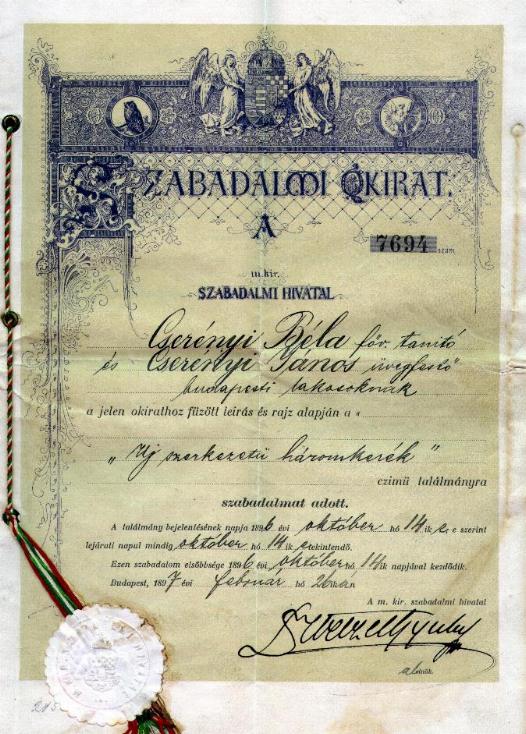 SZABADALMI OKIRAT.
A
7694 szám
m. kir.
SZABADALMI HIVATAL
Cserényi Béla föv. tanitó
és Cserényi János üvegfestő
budapesti lakosoknak
a jelen okirathoz füzött leirás és rajz alapján a «
„Uj szerkezetü háromkerék”
czimü találmányra
szabadalmat adott.
A találmány bejelentésének napja 1896 évi október hó 14 ik, e szerint
lejárati napul mindig október hó 14 ike tekintendő.
Ezen szabadalom elsőbbsége 1896 évi október hó 14 ik napjával kezdődik.
Budapest, 1897 évi február hó 26 ikán
A m. kir. szabadalmi hivatal
alelnök.